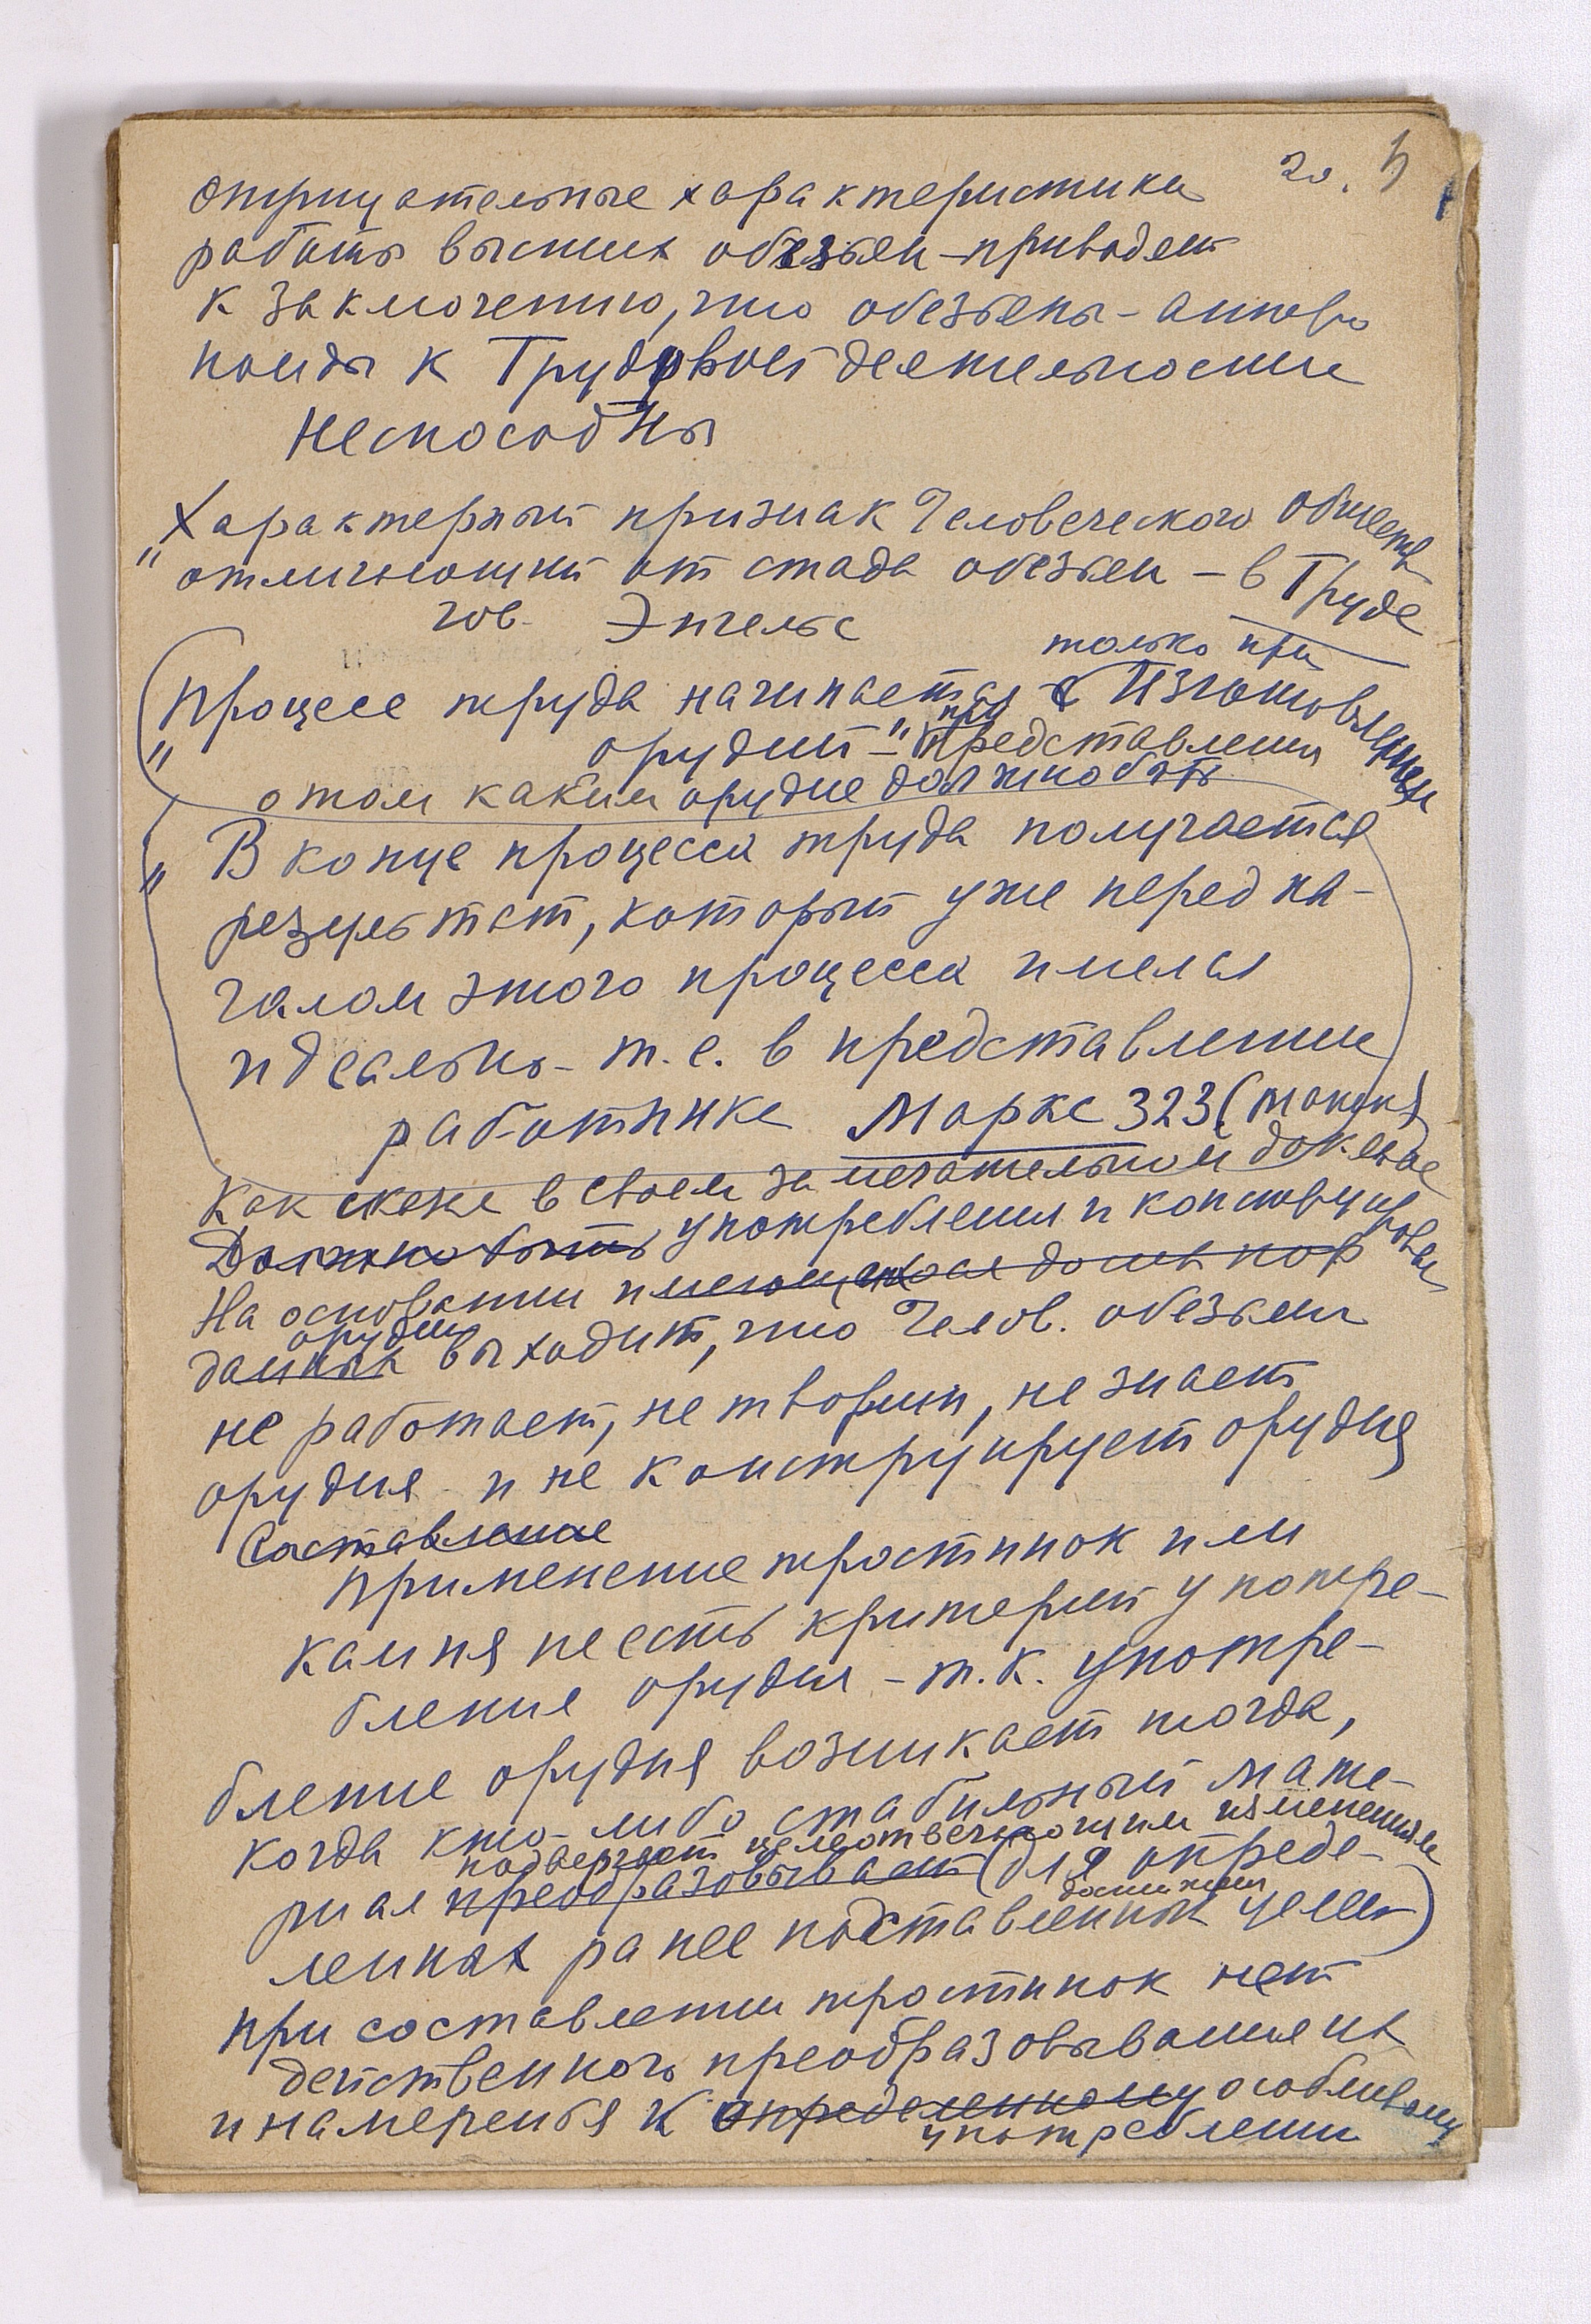 20.
отрицательные характеристики
работы высших обезьян – приводят
к заключению, что обезьяны – антро
поиды к Трудовой деятельности
неспособны
Характерный признак Человеческого общества
"отличающий от стада обезьян – в Труде
гов. Энгельс
только при
Процесс труда начинается с Изготовлением
" орудий – " при представлении
о том каким орудие должно быть
" В конце процесса труда получается
результат, который уже перед на-
чалом этого процесса имелся
идеально – т.е. в представлении
работника Маркс 323 (
Как скаже в своем замечательном докладе
Должно быть употребления и конструирован
На основании имеющихся до сих пор
орудий
данных выходит, что Челов. обезьяны
не работает, не творит, не знает
орудия и не конструирует орудия
Составление
Применение тростинок или
камня не есть критерий употре-
бление орудия – т.к. употре-
бление орудия возникает тогда,
когда кто-либо стабильный мате-
подвергает целотвечающим изменениям
риал преобразовывает (для опреде-
достижения
ленных ранее поставленных целей)
при составлении тростинок нет
действенного преобразовывания их
и намеренья к определенному особливому
употреблении